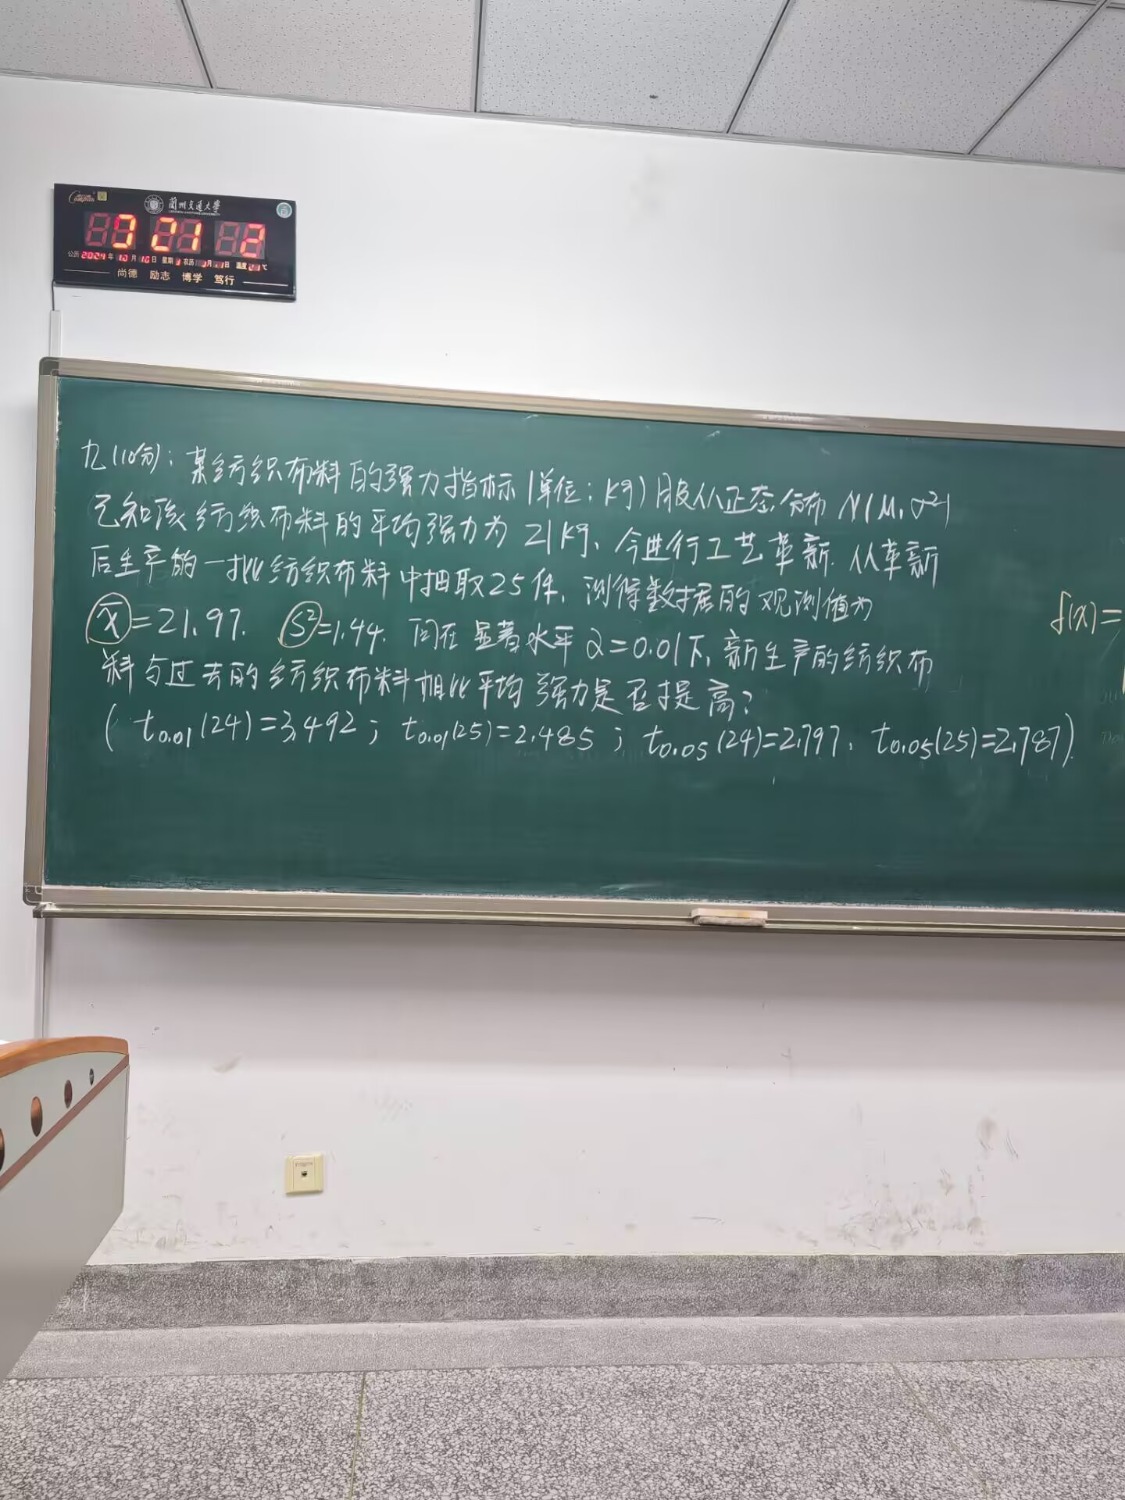 兰州交通大学
3 21 2
公历2024年10月10日 星期
尚德 励志 博学 笃行
九(10分):某纺织布料的强力指标(单位:kg)服从正态分布 N(μ,σ²)
已知该纺织布料的平均强力为 21kg,今进行工艺革新.从革新
后生产的一批纺织布料中抽取25件,测得数据的观测值为
x̄=21.97. S²=1.44. 问在显著水平α=0.01下,新生产的纺织布
f(x)=
料与过去的纺织布料相比平均强力是否提高?
( t0.01(24)=3.492; t0.01(25)=2.485; t0.05(24)=2.797. t0.05(25)=2.787).